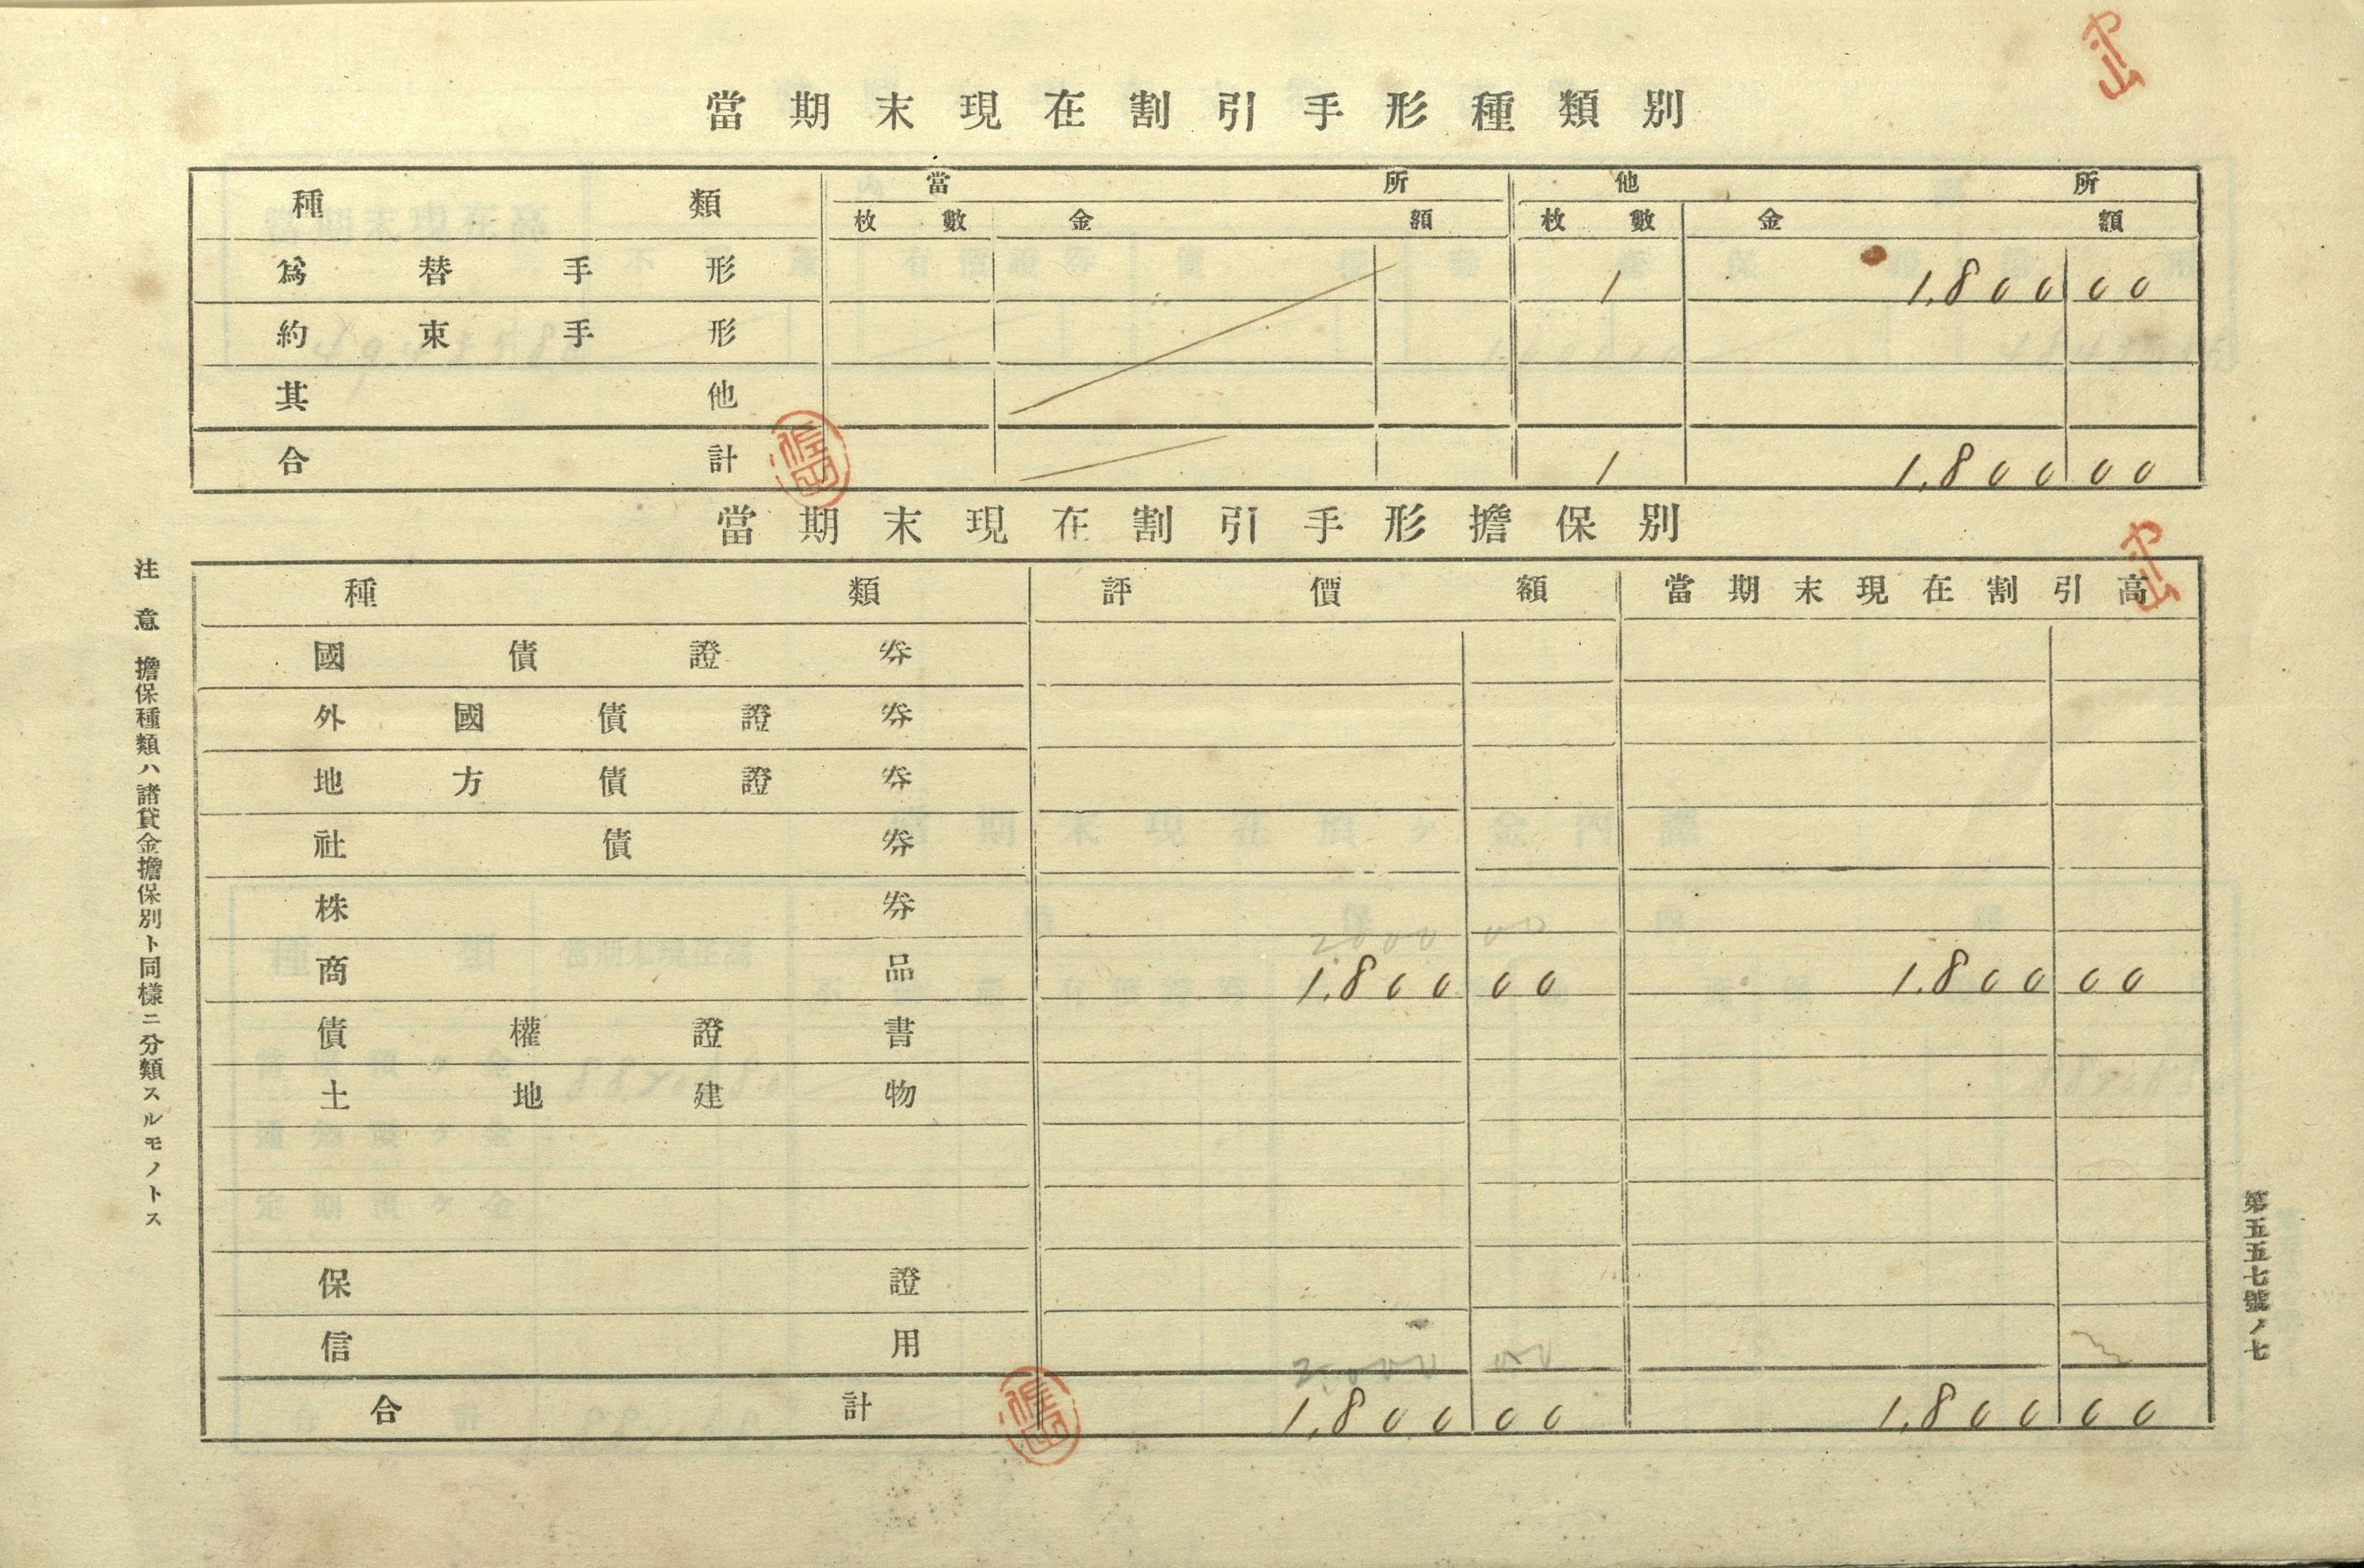 當期末現在割引手形種類別
種類 當所 他所
枚數 金額 枚數 金額
爲替手形 1 1,800 00
約束手形
其他
合計 1 1,800 00
當期末現在割引手形擔保別
種類 評價額 當期末現在割引高
國債證券
外國債證券
地方債證券
社債券
株券
2,000 00
商品 1,800 00 1,800 00
債權證書
土地建物
保證
信用
2,000 00
合計 1,800 00 1,800 00
注意 擔保種類ハ諸貸金擔保別ト同樣ニ分類スルモノトス
第五五七號ノ七